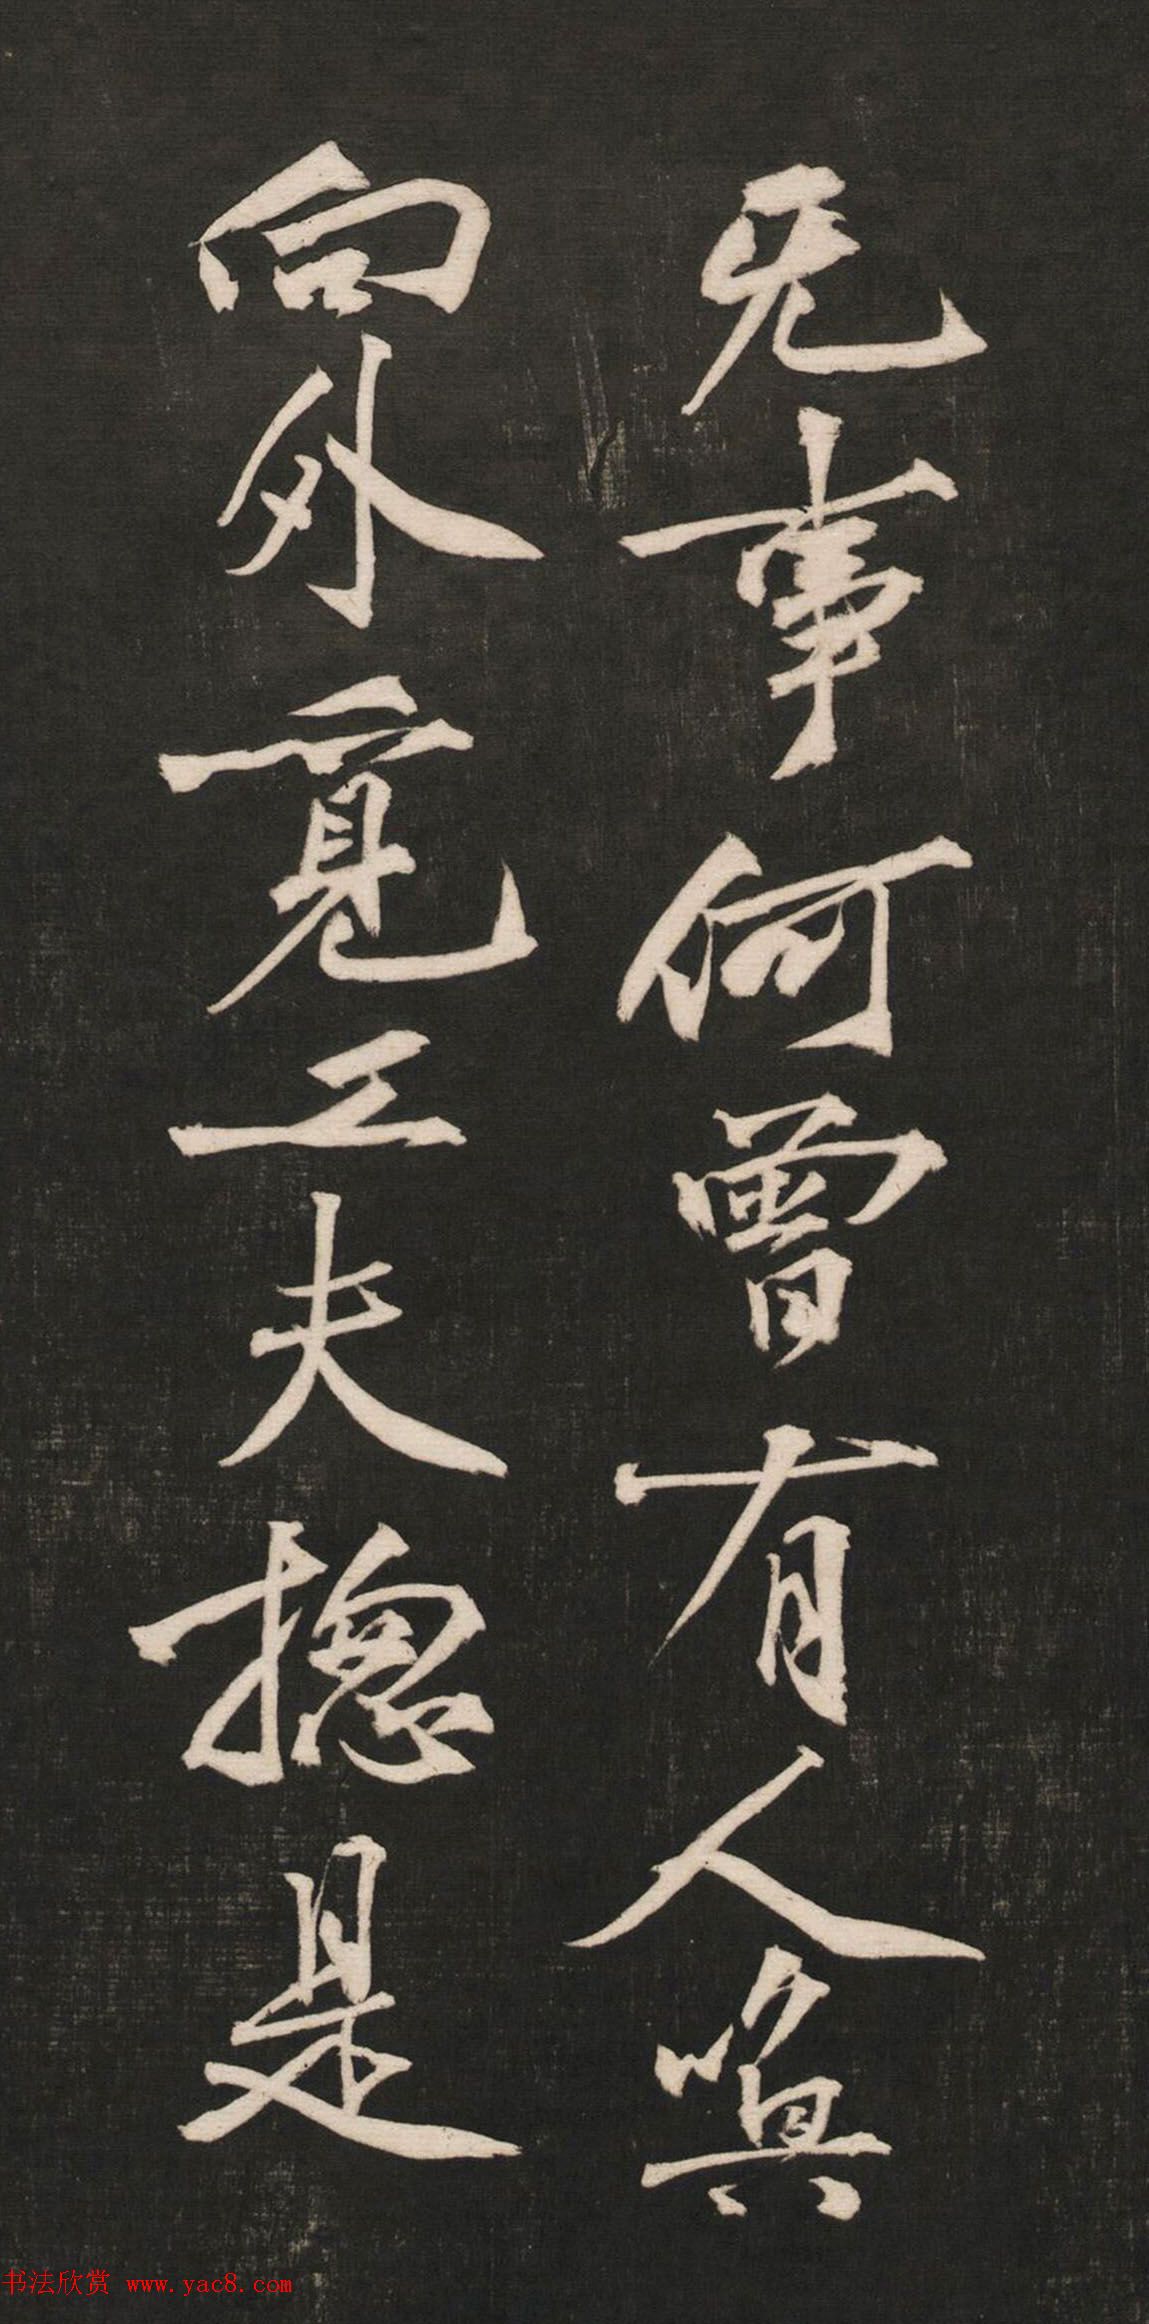 无事何曾有人唤
向外觅工夫揔是
书法欣赏 www.yac8.com